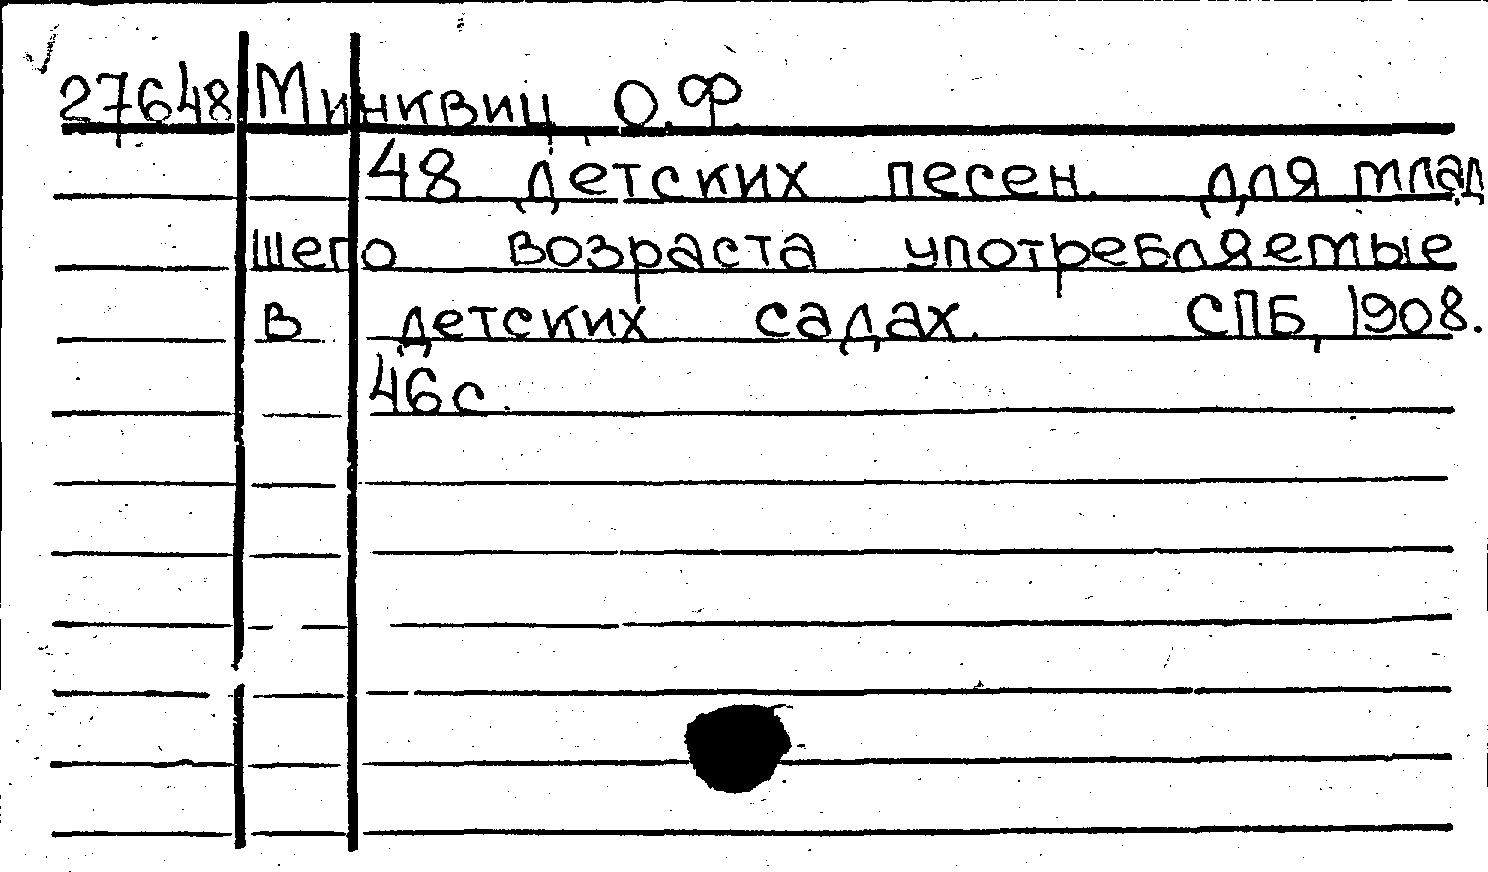 27648 Минквиц О.Ф.
48 детских песен. для млад
шего возраста употребляемые
в детских садах. СПБ, 1908.
46 с.